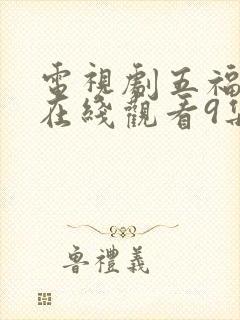 電視劇五福
在綫觀看9集
魯禮義